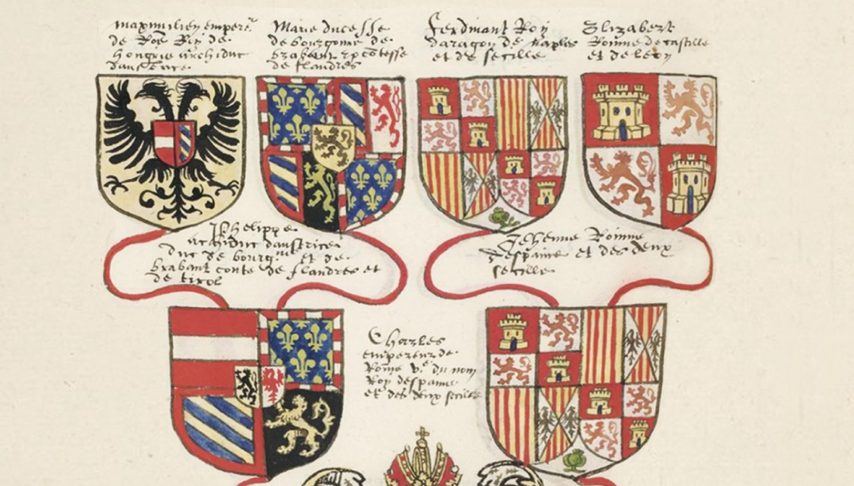 maximilien emper
de Rome Roy de
hongrie archiduc
daustrice
Marie ducesse
de bourgonne de
brabant et contesse
de flandres
ferdinant Roy
daragon de naples
et de secille
Elizabert
Roinne de castille
et de leon
Phelippe
archiduc daustrice
duc de bourgne et de
brabant conte de flandres et
de tirol
Jehenne Roinne
despaine et des deux
secille
Charles
empereur de
Rome Ve du nom
Roy despaine
et des deux secille